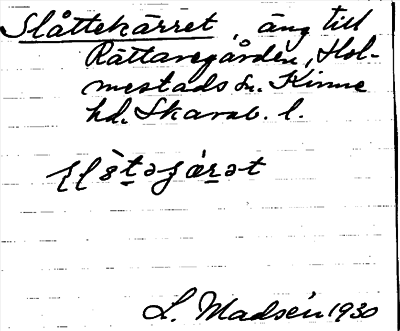 Slåttekärret, äng till
Rättaregården, Hol-
mestads sn. Kinne
hd. Skarab. l.
L. Madsén 1930